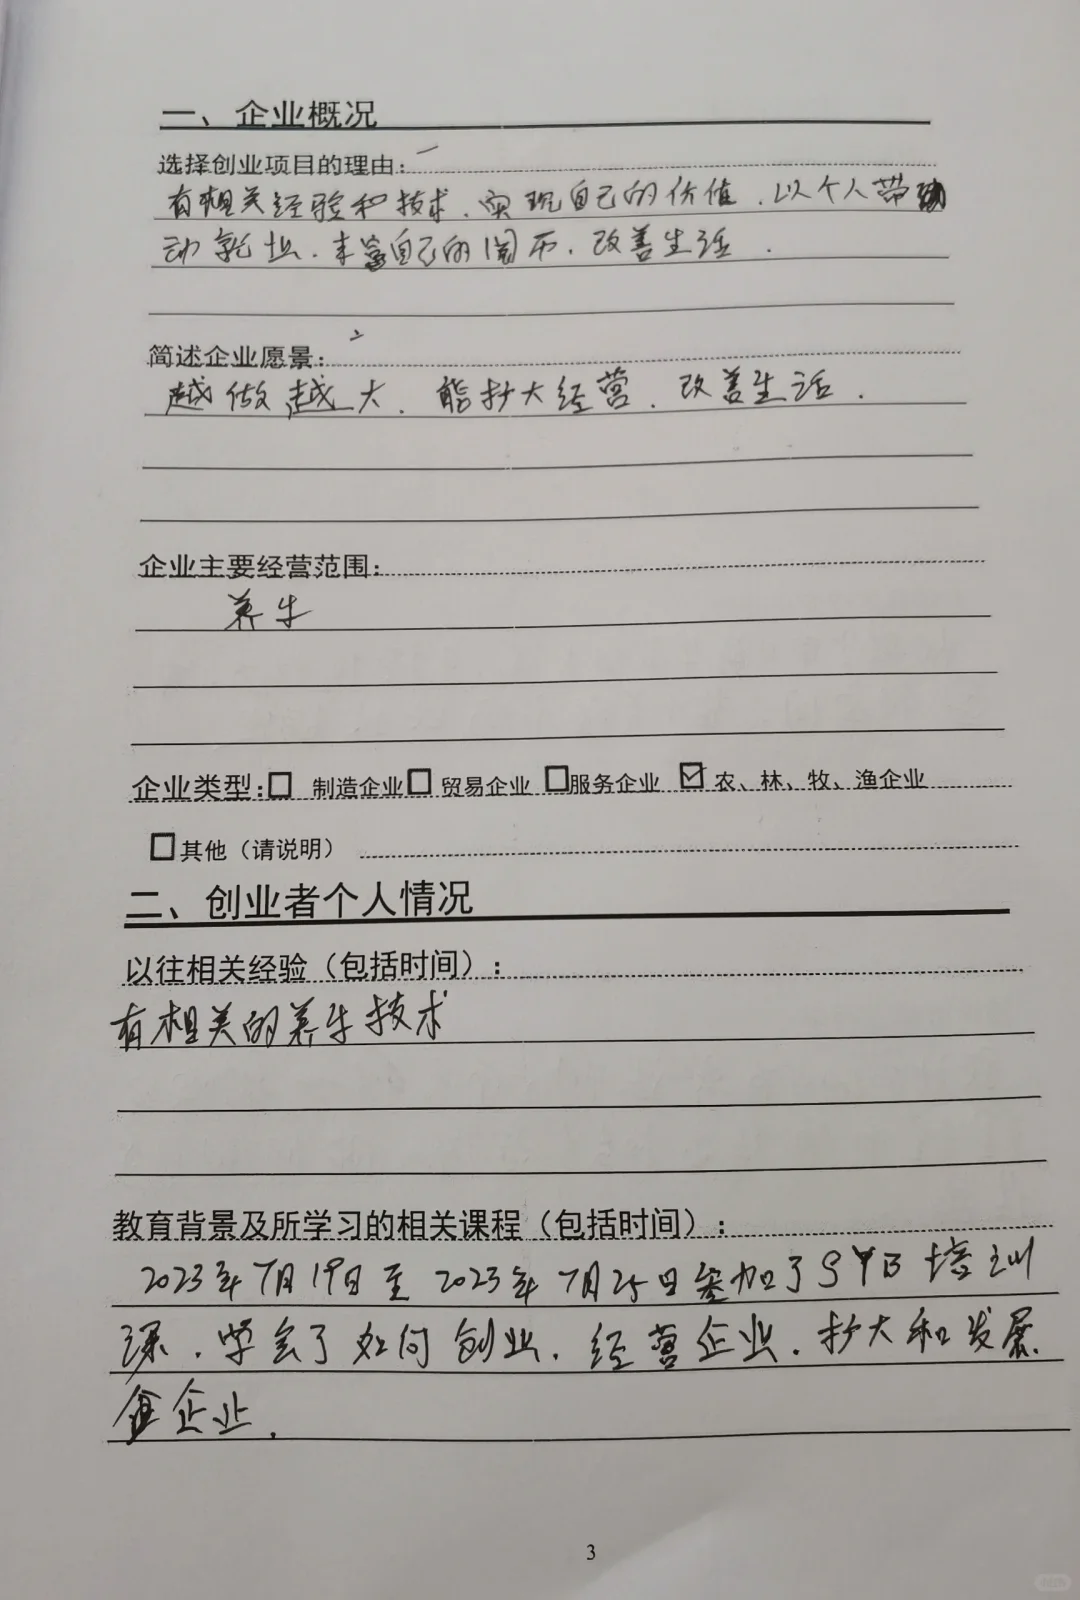 一、企业概况
选择创业项目的理由：一
有相关经验和技术、实现自己的价值、以个人带
动就业、丰富自己的阅历、改善生活。
简述企业愿景：二
越做越大、能抄大经营、改善生活。
企业主要经营范围：
养牛
企业类型：☐ 制造企业 ☐ 贸易企业 ☐ 服务企业 ☑ 农、林、牧、渔企业
☐ 其他（请说明）
二、创业者个人情况
以往相关经验（包括时间）：
有相关的养牛技术
教育背景及所学习的相关课程（包括时间）：
2023年7月19日至2023年7月25日参加了SYB培训
课、学会了如何创业、经营企业、抄大和发展
企业。
3